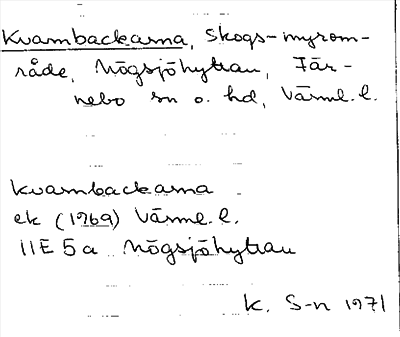 Kvarnbackarna, skogs-myrom-
råde, Högsjöhyttan, Fär-
nebo sn o. hd, Värml. l.
Kvarnbackarna
ek (1969) Värml. l.
11E 5a Högsjöhyttan
K. S-n 1971